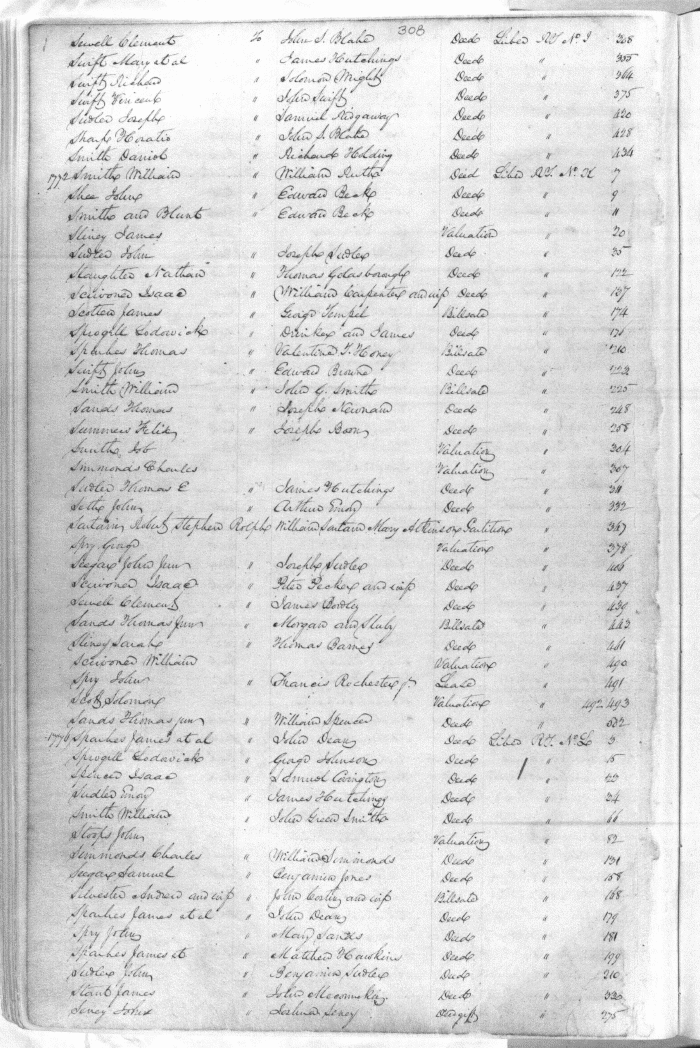 308
Sewell Clement % John S. Blake Deed Liber RT No. I 308
Swift Mary et al " James Hutchings Deed " 355
Swift Richard " Solomon Wright Deed " 364
Swift Vincent " John Swift Deed " 375
Sudler Joseph " Samuel Ridgaway Deed " 420
Sharp Horatio " John S. Blake Deed " 428
Smith Daniel " Richard Holding Deed " 434
1772 Smith William " William Ruth Deed Liber RT No. K 7
Shee John " Edward Beck Deed " 9
Smith and Blunt " Edward Beck Deed " 11
Sliney James Valuation " 20
Sudler John " Joseph Sudler Deed " 35
Slaughter Nathan " Thomas Goldsborough Deed " 122
Scrivoner Isaac " William Carpenter and wife Deed " 137
Scotton James " George Tempel Billsale " 174
Sprogill Lodowick " Drinker and James Deed "
Sparkes Thomas " Valentine T. Honey Billsale " 210
Swift John " Edward Browne Deed " 222
Smith William " John G. Smith Billsale " 225
Sands Thomas " Joseph Newnam Deed " 248
Summers Felix " Joseph Boon Deed " 258
Smith, Job Valuation " 304
Simmonds Charles Valuation " 307
Sudler Thomas E " James Hutchings Deed " 311
Seth John " Arthur Emory Deed " 332
Robert Stephen Rolph William Mary Atkinson Partition " 347
Spry George Valuation " 378
Seegar John Junr " Joseph Sudler Deed " 406
Scrivoner Isaac " Peter and wife Deed " 437
Sewell Clement " James Bordly Deed " 439
Sands Thomas Junr " Morgan and Sluby Billsale " 443
Sliney Sarah " Thomas Barnes Deed " 461
Scrivoner William Valuation " 490
Spry John " Francis Rochester Jr Lease " 491
Scott Solomon Valuation " 492/493
Sands Thomas junr " William Spencer Deed " 522
1776 Sparkes James et al " John Dean Deed Liber RT. No. L 3
Sprogill Lodowick " George Johnson Deed " 15
Spencer Isaac " Samuel Covington Deed " 23
Sudler Emory " James Hutchings Deed " 34
Smith William " John Green Smith Deed " 66
Stoops John Valuation " 82
Simmonds Charles " William Simmonds Deed " 131
Seegar Samuel " Benjamin Jones Deed " 158
Silvester Andrew and wife " John Costin and wife Billsale " 168
Sparkes James et al " John Dean Deed " 179
Spry John " Mary Sands Deed " 181
Sparkes James et " Matthew Hawkins Deed " 199
Sudler John " Benjamin Sudler Deed " 210
Stant James " John Meconnekin Deed " 220
Seney John " Joshua Seney Deed gift " 275